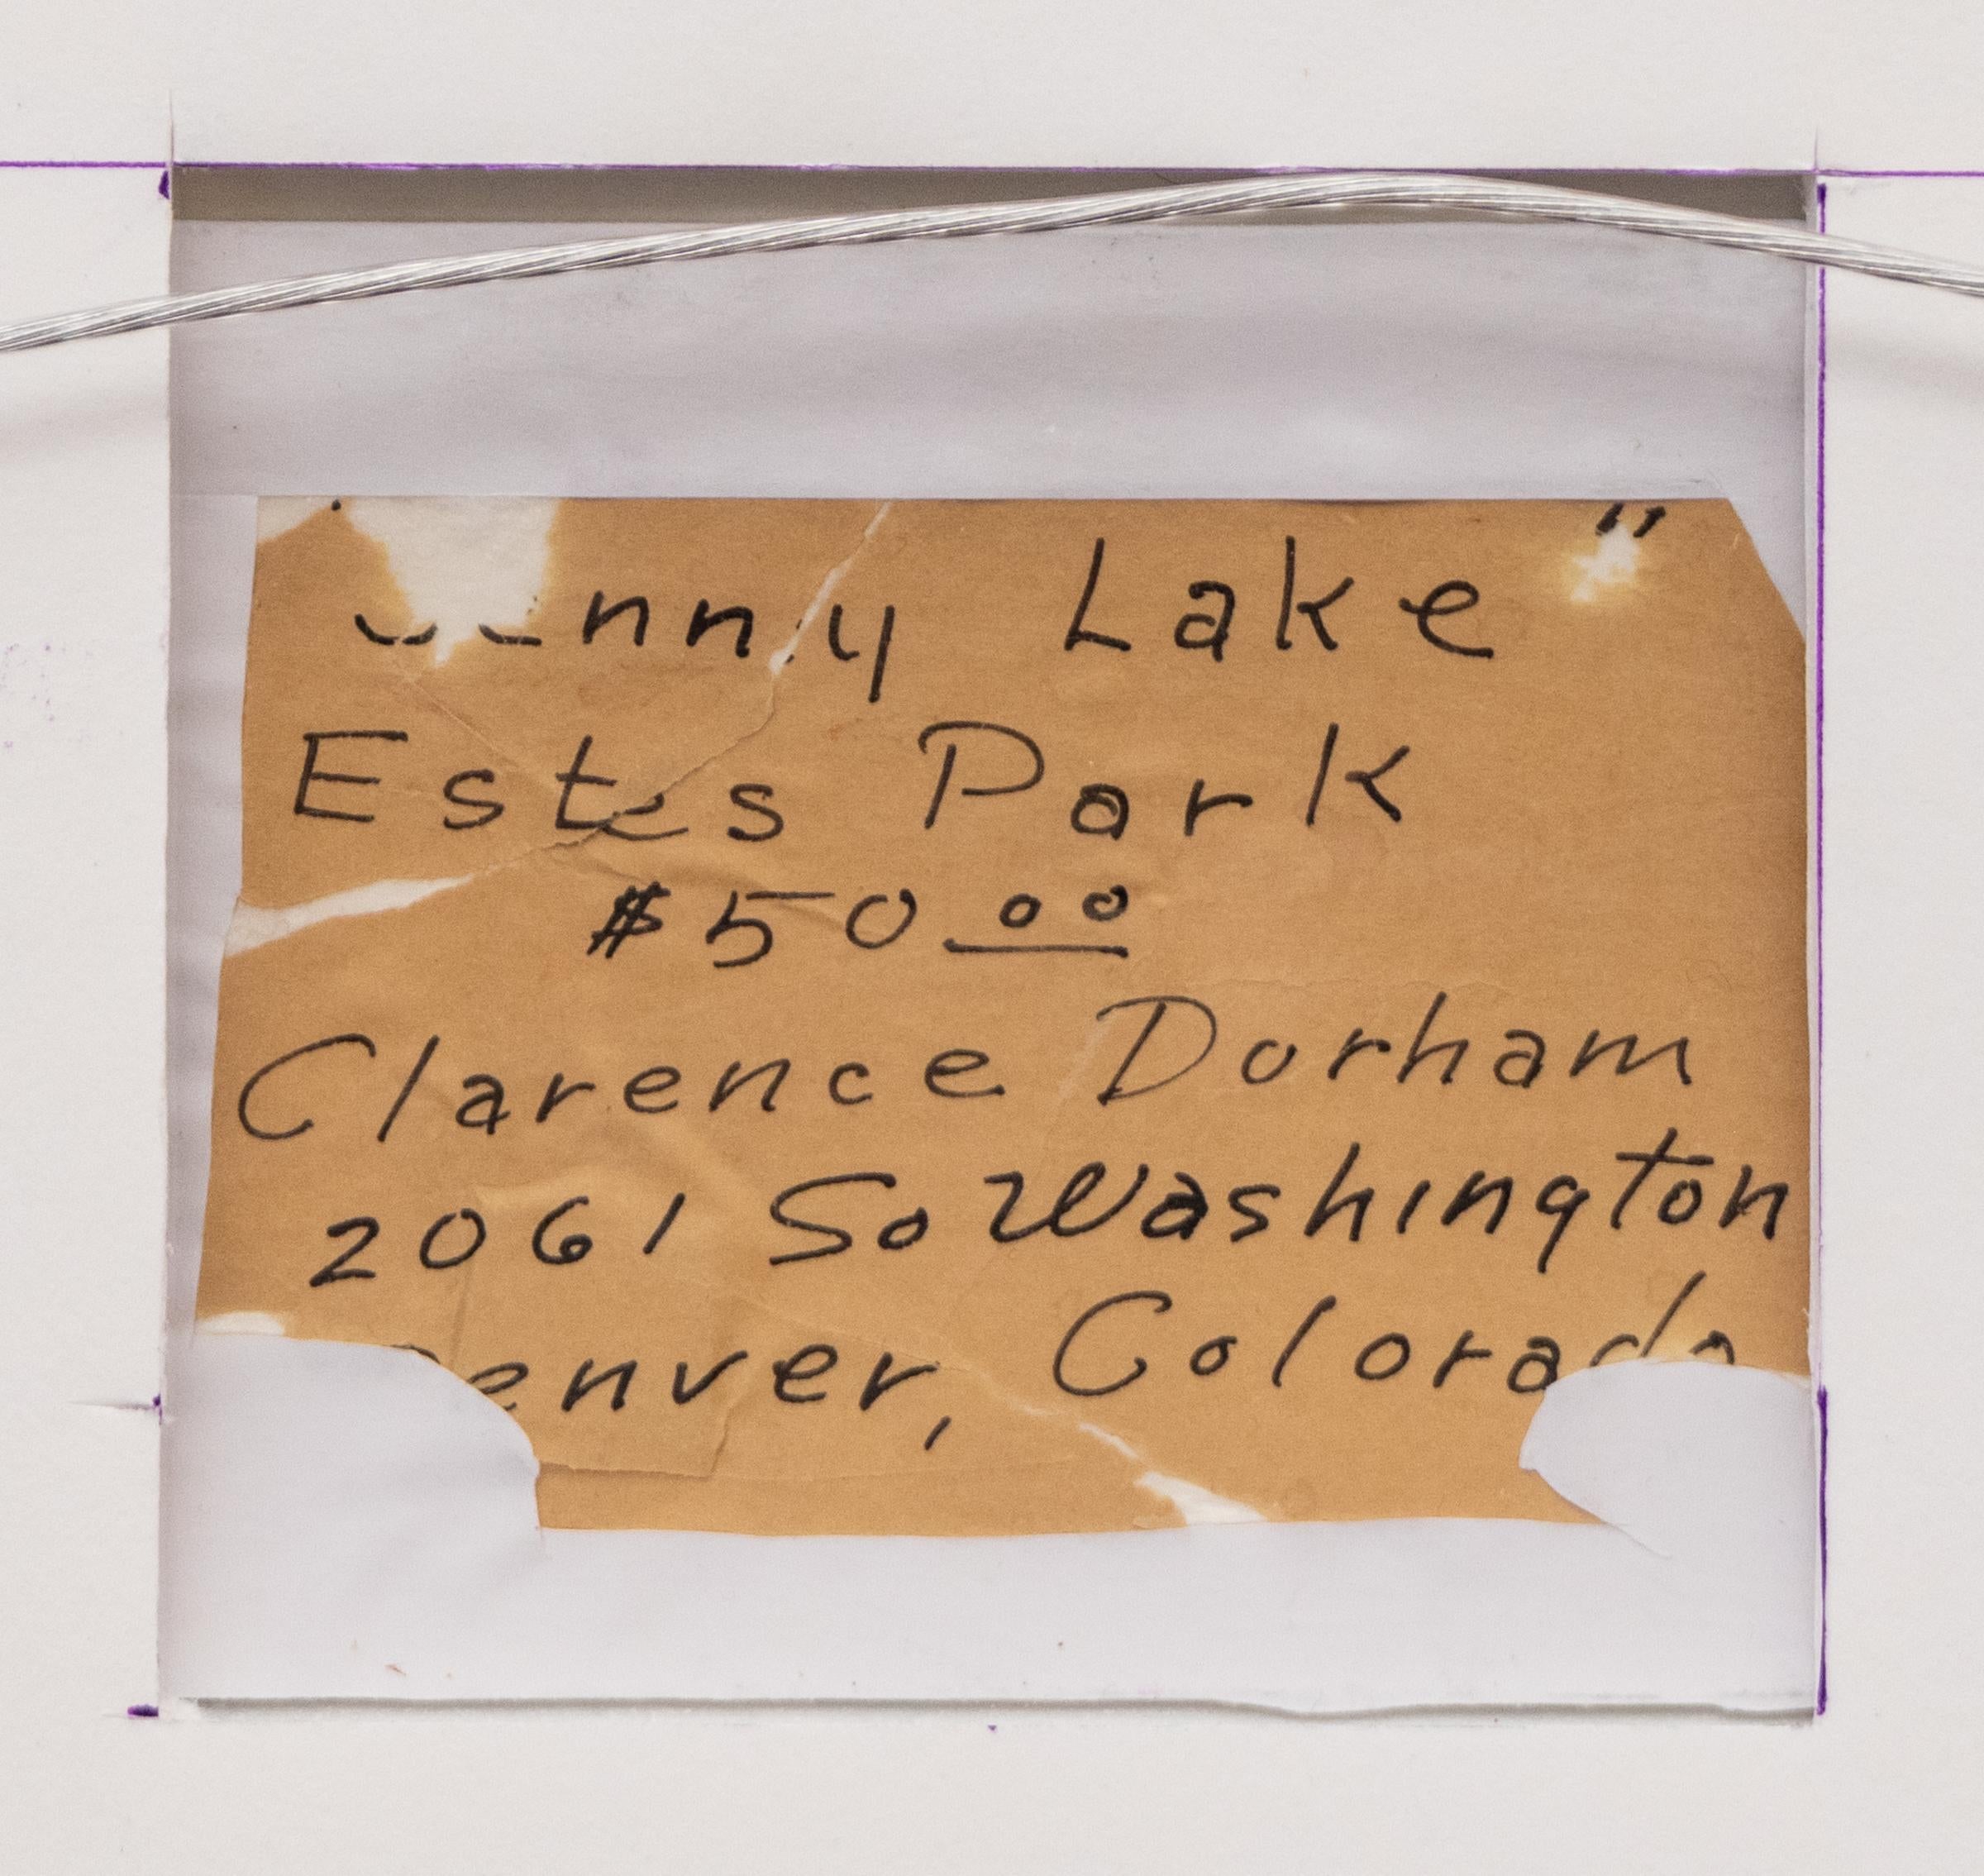 Lake"
Estes Park
$50.00
Clarence Dorham
2061 So Washington
Denver, Colorado